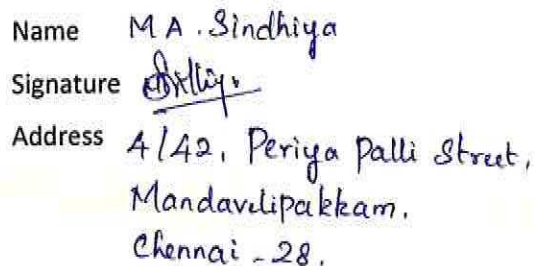 Name M A. Sindhiya
Signature
Address 4/42, Periya Palli Street,
Mandavelipakkam.
Chennai - 28.